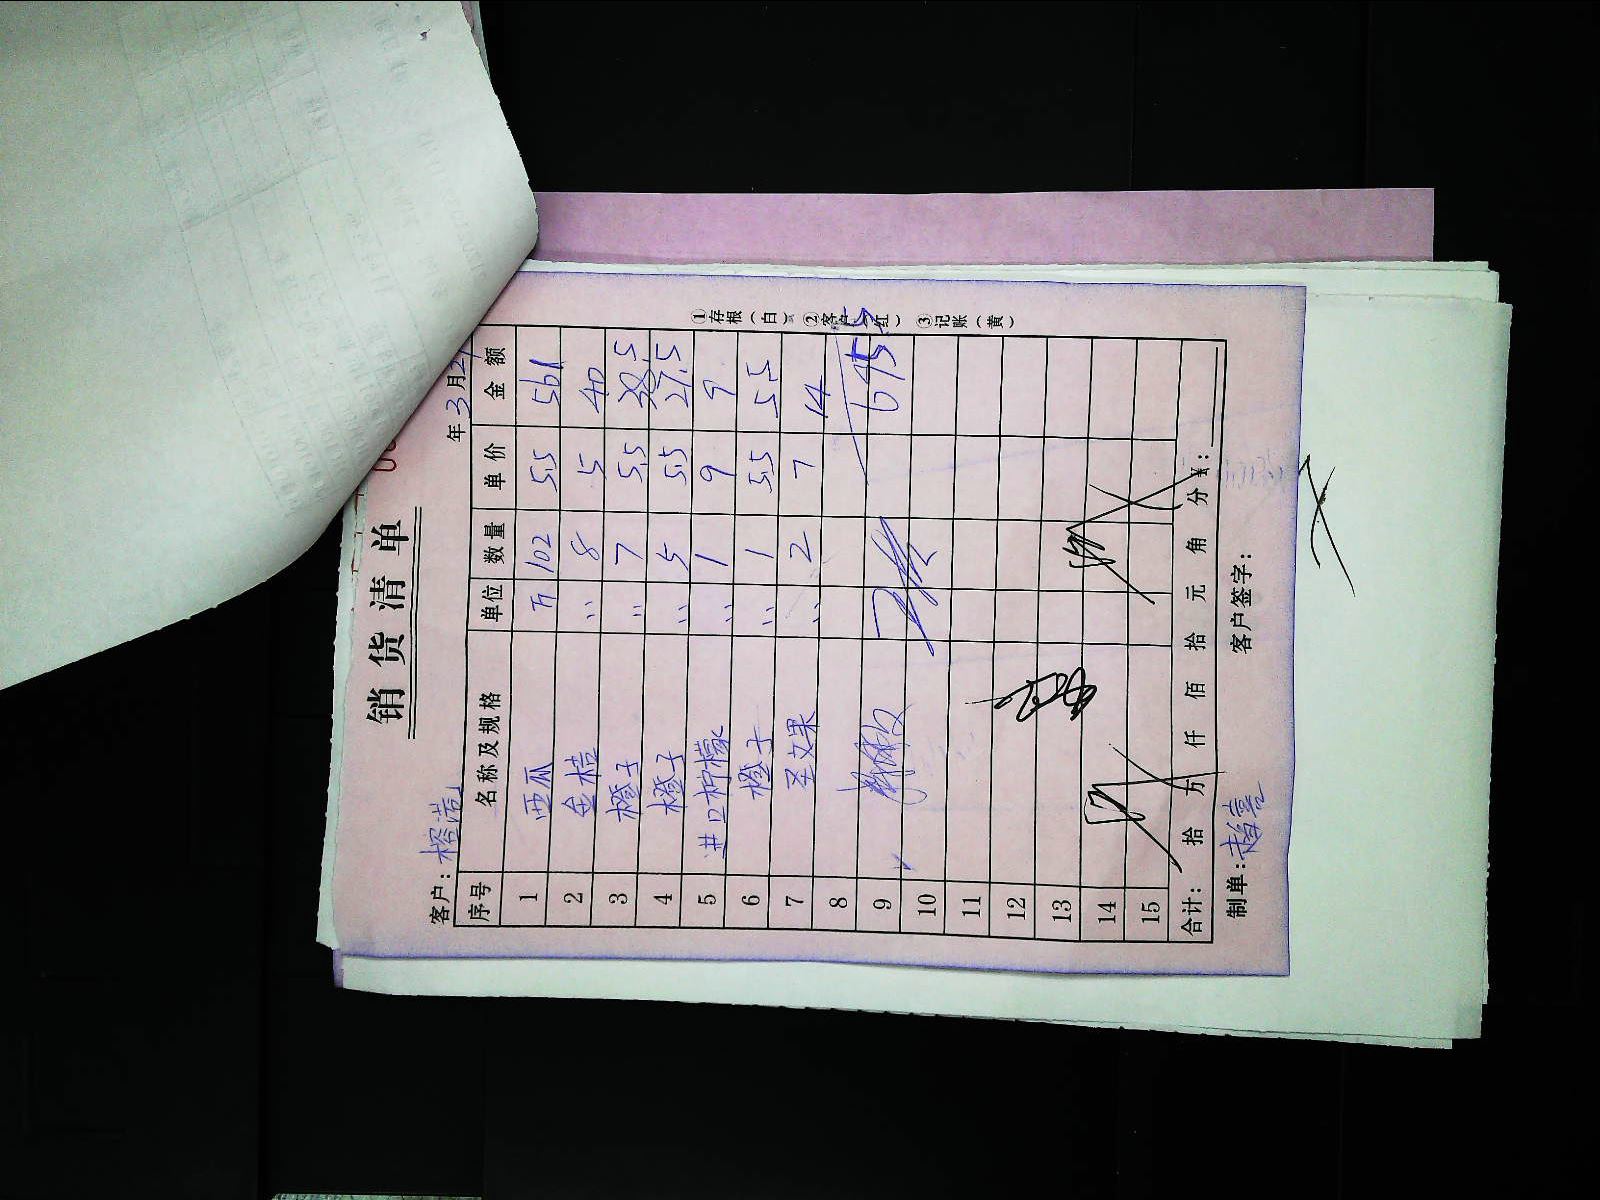 销货清单
客户：
年3月2
序号 名称及规格 单位 数量 单价 金额
1 西瓜 斤 102 5.5 561
2 金桔 〃 8 5 40
3 橙子 〃 7 5.5 38.5
4 橙子 〃 5 5.5 27.5
5 进口柠檬 〃 1 9 9
6 橙子 〃 1 5.5 5.5
7 圣女果 〃 2 7 14
8
9 695.5
10
11
12
13
14
15
合计： 拾 万 仟 佰 拾 元 角 分 ¥：
制单： 客户签字：
①存根（白） ②客户（红） ③记账（黄）